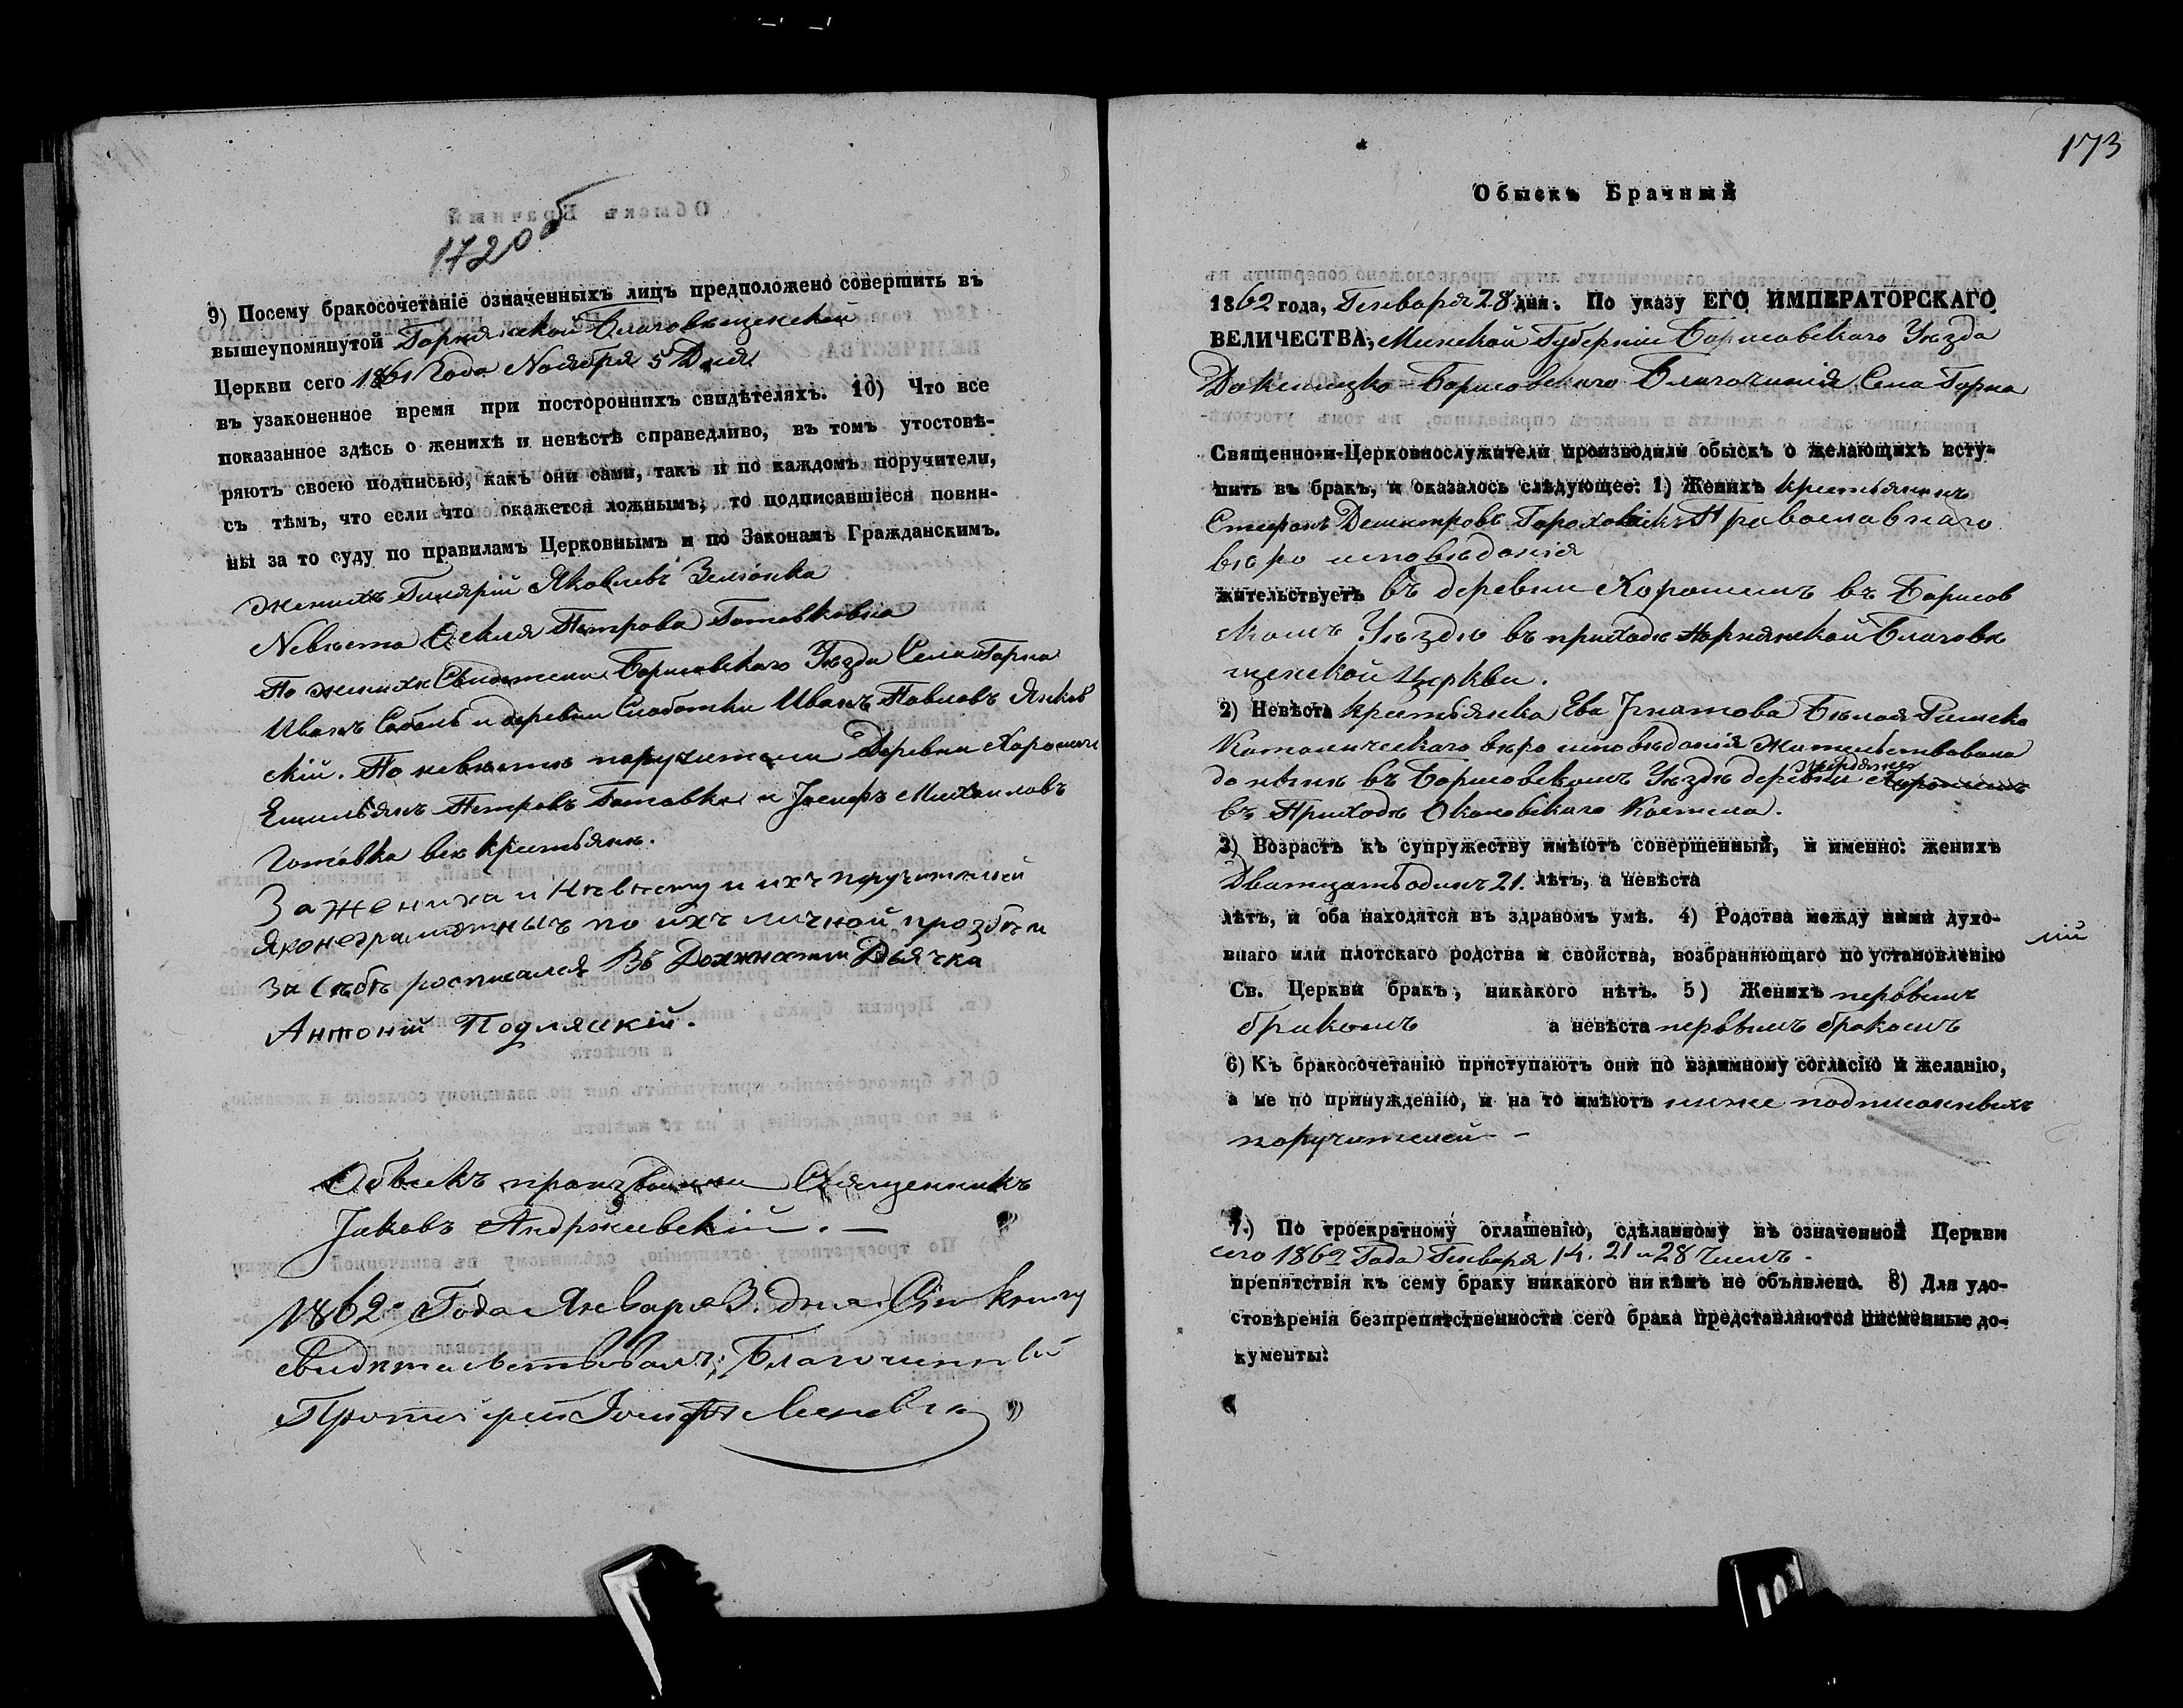 172 об
9) Посему бракосочетаніе означенныхъ лицъ предположено совершить въ
вышеупомянутой Горнянской Благовѣщенской
Церкви сего 1861 Года Ноября 5 Дня
въ узаконенное время при постороннихъ свидѣтеляхъ. 10) Что все
показанное здѣсь о женихѣ и невѣстѣ справедливо, въ томъ утостовѣ-
ряютъ своею подписью, какъ они сами, такъ и по каждомъ поручители,
съ тѣмъ, что если что окажется ложнымъ, то подписавшіеся повин-
ны за то суду по правиламъ Церковнымъ и по Законамъ Гражданскимъ.
Женихъ Гилярій Яковлевъ Зеліонка
Невѣста Петрова Готовковна
По женихѣ Борисовскаго Уѣзда Села Горна
Иванъ Соболь и деревни Слободки Иванъ Павловъ
скій. По невѣстѣ поручители Деревни
Емильянъ Петровъ Готовка и Іосифъ Михаиловъ
Готовка всѣ крестьяне.
За жениха и невесту и ихъ поручителей
яконеграмотныъ по ихъ личной прозбѣ и
за себѣ росписался Въ Должности Дьячка
Антоній Подляскій.
Обыскъ производили Священникъ
Іаковъ Андржиевскій. —
1862 Года Января 3. дня Сію книгу
свидѣтельствовалъ: Благочинный
Протоіерей Іосифъ
173
Обыскъ Брачный
1862 года, Генваря 28 дни. По указу ЕГО ИМПЕРАТОРСКАГО
ВЕЛИЧЕСТВА, Минской Губерніи Борисовскаго Уѣзда
Докшицко Борисовскаго Благочинія Села Горна
Священно-и-Церковнослужители производили обыскъ о желающихъ всту-
пить въ бракъ, и оказалось слѣдующее: 1) Женихъ крестьянинъ
Стефанъ Демитровъ Православнаго
вѣро исповѣданія
жительствуетъ въ деревни въ Борисов
скомъ Уѣздѣ въ приходѣ Горнянской Благовѣ
щенской Церкви.
2) Невѣста крестьянка Ева Игнатова Бѣлая Римско
Католическаго вѣро исповѣданія Жительствовала
до нынѣ въ Борисовскомъ Уѣздѣ деревни
въ Приходѣ Околовскаго Костела.
3) Возрастъ къ супружеству имѣютъ совершенный, и именно: женихъ
Дватцать одинъ 21. лѣтъ, а невѣста
лѣтъ, и оба находятся въ здравомъ умѣ. 4) Родства между ними духо-
внаго или плотскаго родства и свойства, возбраняющаго по установленію
Св. Церкви бракъ, никакого нѣтъ. 5) Женихъ первымъ
бракомъ а невѣста первымъ бракомъ
6) Къ бракосочетанію приступаютъ они по взаимному согласію и желанію,
а не по принужденію, и на то имѣютъ ниже подписанныхъ
поручителей -
7.) По троекратному оглашенію, сдѣланному въ означенной Церкви
сего 1862 Года Генваря 14. 21 и 28 чиселъ.
препятствія къ сему браку никакого ни кѣмъ не объявлено. 8) Для удо-
стовѣренія безпрепятственности сего брака представляются письменные до-
кументы: